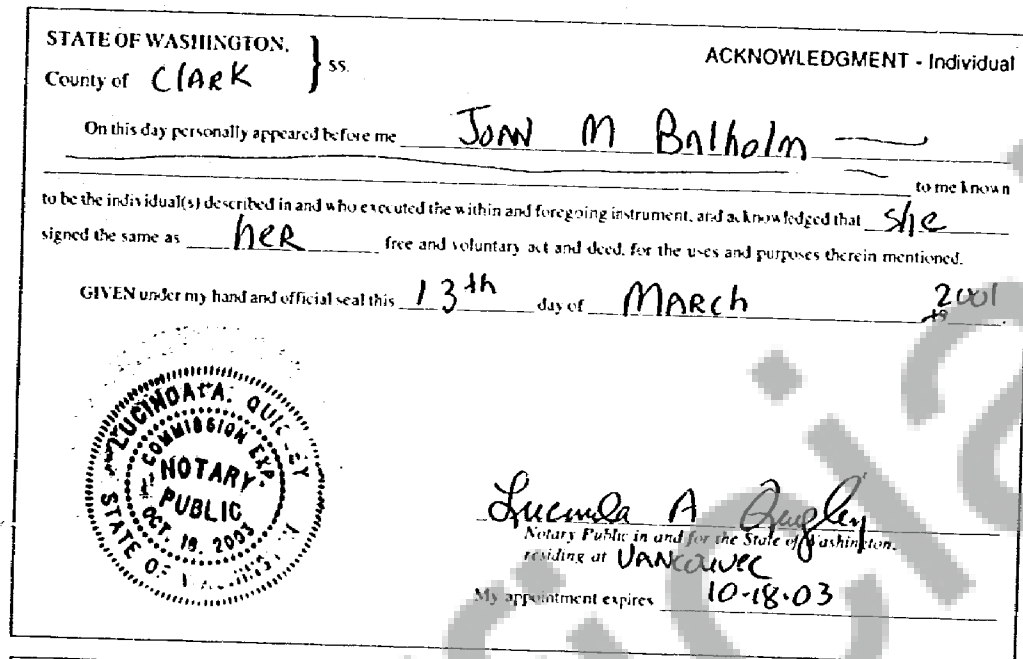 STATE OF WASHINGTON, } ss.
ACKNOWLEDGMENT - Individual
County of Clark
On this day personally appeared before me Joan M Balholm
to me known
to be the individual(s) described in and who executed the within and foregoing instrument, and acknowledged that she
signed the same as her free and voluntary act and deed, for the uses and purposes therein mentioned.
GIVEN under my hand and official seal this 13th day of March 2001
19
LUCINDA A.
COMMISSION EXP.
NOTARY
PUBLIC
OCT. 18, 2003
STATE OF
Lucinda A Quigley
Notary Public in and for the State of Washington,
residing at Vancouver
My appointment expires 10-18-03